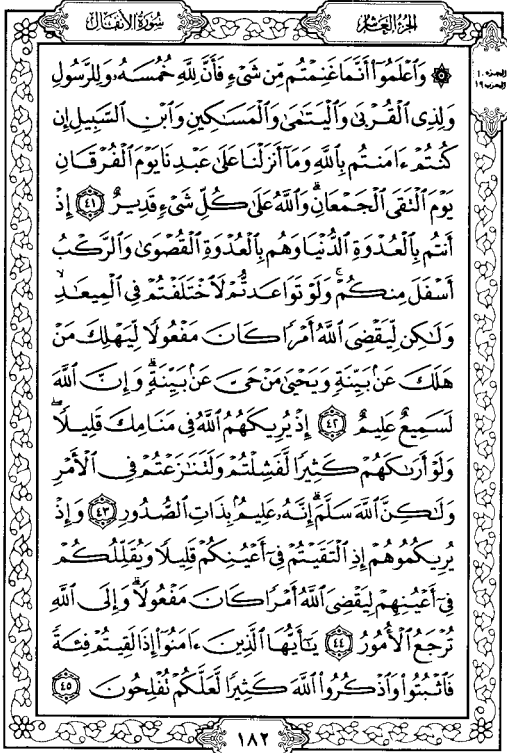 سورة الأنفال
الجزء العاشر
الجزء ١٠
الحزب ١٩
۞ وَٱعۡلَمُوٓاْ أَنَّمَا غَنِمۡتُم مِّن شَيۡءٖ فَأَنَّ لِلَّهِ خُمُسَهُۥ وَلِلرَّسُولِ
وَلِذِي ٱلۡقُرۡبَىٰ وَٱلۡيَتَٰمَىٰ وَٱلۡمَسَٰكِينِ وَٱبۡنِ ٱلسَّبِيلِ إِن
كُنتُمۡ ءَامَنتُم بِٱللَّهِ وَمَآ أَنزَلۡنَا عَلَىٰ عَبۡدِنَا يَوۡمَ ٱلۡفُرۡقَانِ
يَوۡمَ ٱلۡتَقَى ٱلۡجَمۡعَانِۗ وَٱللَّهُ عَلَىٰ كُلِّ شَيۡءٖ قَدِيرٌ ٤١ إِذۡ
أَنتُم بِٱلۡعُدۡوَةِ ٱلدُّنۡيَا وَهُم بِٱلۡعُدۡوَةِ ٱلۡقُصۡوَىٰ وَٱلرَّكۡبُ
أَسۡفَلَ مِنكُمۡۚ وَلَوۡ تَوَاعَدتُّمۡ لَٱخۡتَلَفۡتُمۡ فِي ٱلۡمِيعَٰدِ
وَلَٰكِن لِّيَقۡضِيَ ٱللَّهُ أَمۡرٗا كَانَ مَفۡعُولٗا لِّيَهۡلِكَ مَنۡ
هَلَكَ عَنۢ بَيِّنَةٖ وَيَحۡيَىٰ مَنۡ حَيَّ عَنۢ بَيِّنَةٖۗ وَإِنَّ ٱللَّهَ
لَسَمِيعٌ عَلِيمٌ ٤٢ إِذۡ يُرِيكَهُمُ ٱللَّهُ فِي مَنَامِكَ قَلِيلٗاۖ
وَلَوۡ أَرَىٰكَهُمۡ كَثِيرٗا لَّفَشِلۡتُمۡ وَلَتَنَٰزَعۡتُمۡ فِي ٱلۡأَمۡرِ
وَلَٰكِنَّ ٱللَّهَ سَلَّمَۗ إِنَّهُۥ عَلِيمُۢ بِذَاتِ ٱلصُّدُورِ ٤٣ وَإِذۡ
يُرِيكُمُوهُمۡ إِذِ ٱلۡتَقَيۡتُمۡ فِيٓ أَعۡيُنِكُمۡ قَلِيلٗا وَيُقَلِّلُكُمۡ
فِيٓ أَعۡيُنِهِمۡ لِيَقۡضِيَ ٱللَّهُ أَمۡرٗا كَانَ مَفۡعُولٗاۗ وَإِلَى ٱللَّهِ
تُرۡجَعُ ٱلۡأُمُورُ ٤٤ يَٰٓأَيُّهَا ٱلَّذِينَ ءَامَنُوٓاْ إِذَا لَقِيتُمۡ فِئَةٗ
فَٱثۡبُتُواْ وَٱذۡكُرُواْ ٱللَّهَ كَثِيرٗا لَّعَلَّكُمۡ تُفۡلِحُونَ ٤٥
١٨٢